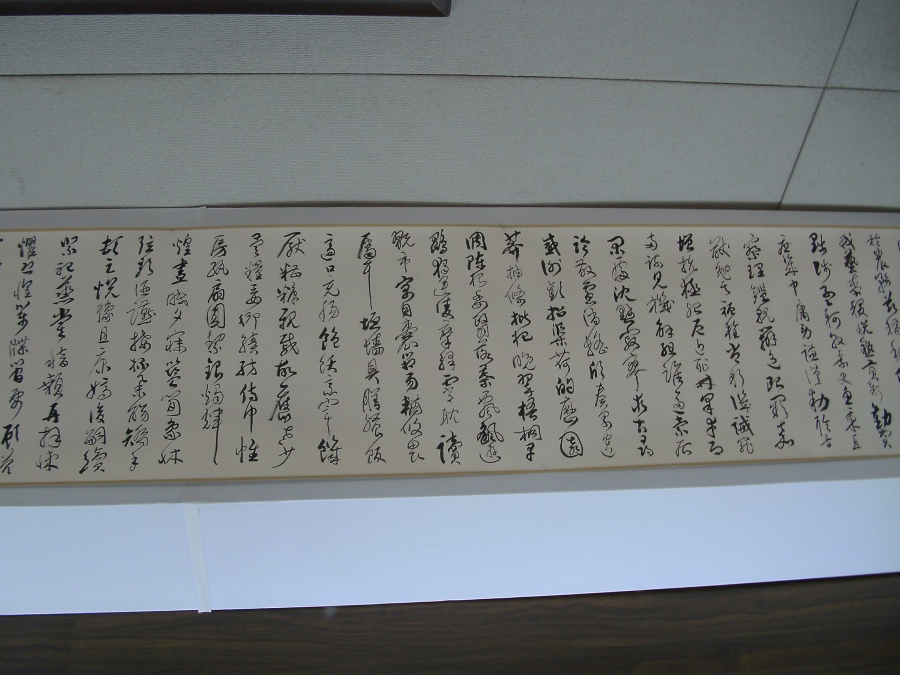 於農務茲稼穡
我藝黍稷稅熟貢新勸賞
黜陟孟軻敦素史魚秉直
庶幾中庸勞謙謹勅聆音
察理鑑貌辨色貽厥嘉
猷勉其祗植省躬譏誡寵
增抗極殆辱近恥林皋幸即
兩疏見機解組誰逼索居
閑處沈默寂寥求古尋
論散慮逍遙欣奏累遣
慼謝歡招渠荷的歷園
莽抽條枇杷晚翠梧桐早
凋陳根委翳落葉飄颻遊
鵾獨運凌摩絳霄耽讀
翫市寓目囊箱易輶攸畏
屬耳垣牆具膳飡飯
適口充腸飽飫烹宰飢
厭糟糠親戚故舊老少
異糧妾御績紡侍巾帷
房紈扇圓潔銀燭煒
煌晝眠夕寐藍筍象牀
弦歌酒讌接杯舉觴矯手
頓足悅豫且康嫡後嗣續
祭祀蒸嘗稽顙再拜悚
懼恐惶牋牒簡要顧答